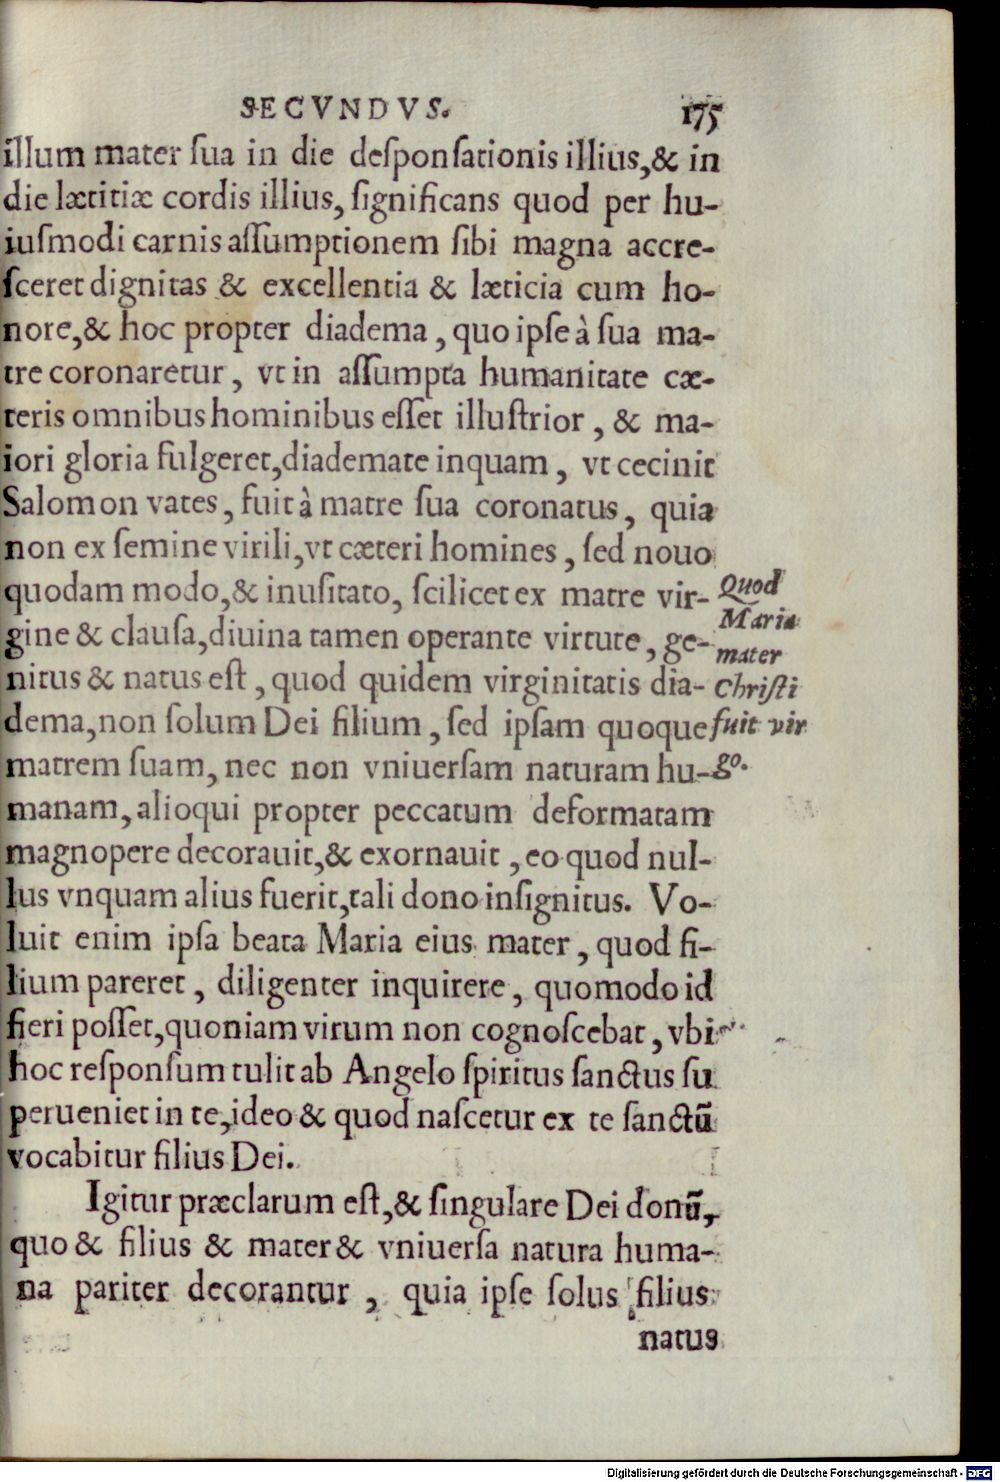 SECVNDVS. 175
illum mater ſua in die deſponſationis illius,& in
die lætitiæ cordis illius, ſignificans quod per hu-
iuſmodi carnis aſſumptionem ſibi magna accre-
ſceret dignitas & excellentia & læticia cum ho-
nore,& hoc propter diadema, quo ipſe à ſua ma-
tre coronaretur, vt in aſſumpta humanitate cæ-
teris omnibus hominibus eſſet illuſtrior, & ma-
iori gloria fulgeret,diademate inquam, vt cecinit
Salomon vates, fuit à matre ſua coronatus, quia
non ex ſemine virili,vt cæteri homines, ſed nouo
quodam modo,& inuſitato, ſcilicet ex matre vir-
gine & clauſa,diuina tamen operante virtute, ge-
nitus & natus eſt, quod quidem virginitatis dia-
dema,non ſolum Dei filium, ſed ipſam quoque
matrem ſuam, nec non vniuerſam naturam hu-
manam, alioqui propter peccatum deformatam
magnopere decorauit,& exornauit, eo quod nul-
lus vnquam alius fuerit,tali dono inſignitus. Vo-
luit enim ipſa beata Maria eius mater, quod fi-
lium pareret, diligenter inquirere, quomodo id
fieri poſſet,quoniam virum non cognoſcebat, vbi
hoc reſponſum tulit ab Angelo ſpiritus ſanctus ſu
perueniet in te,ideo & quod naſcetur ex te ſanctũ
vocabitur filius Dei.
Igitur præclarum eſt,& ſingulare Dei donũ,
quo & filius & mater & vniuerſa natura huma-
na pariter decorantur, quia ipſe ſolus filius
natus
Quod
Maria
mater
Chriſti
fuit vir
go.
Digitalisierung gefördert durch die Deutsche Forschungsgemeinschaft - DFG